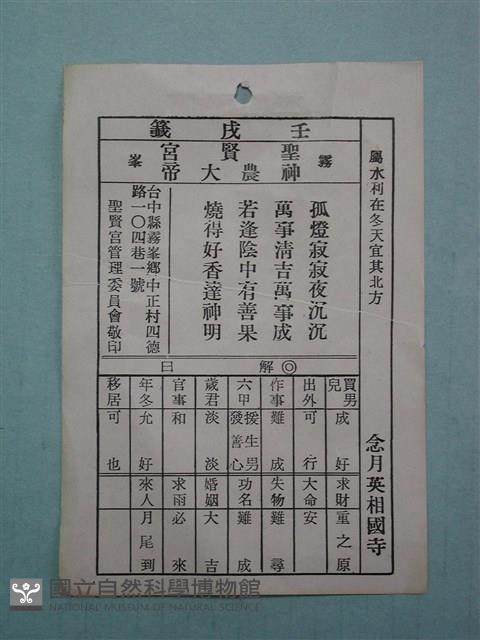 屬水利在冬天宜其北方
念月英相國寺
壬戌籤
霧峯
聖賢宮
神農大帝
孤燈寂寂夜沉沉
萬事清吉萬事成
若逢陰中有善果
燒得好香達神明
台中縣霧峯鄉中正村四德
路一〇四巷一號
聖賢宮管理委員會敬印
◎解曰
買男兒 成好
出外 可行
作事 難成
六甲 援生男 發善心
歲君 淡淡
官事 和
年冬 允好
移居 可也
求財 重之原
大命 安
失物 難尋
功名 難成
婚姻 大吉
求雨 必來
來人 月尾到
國立自然科學博物館
NATIONAL MUSEUM OF NATURAL SCIENCE